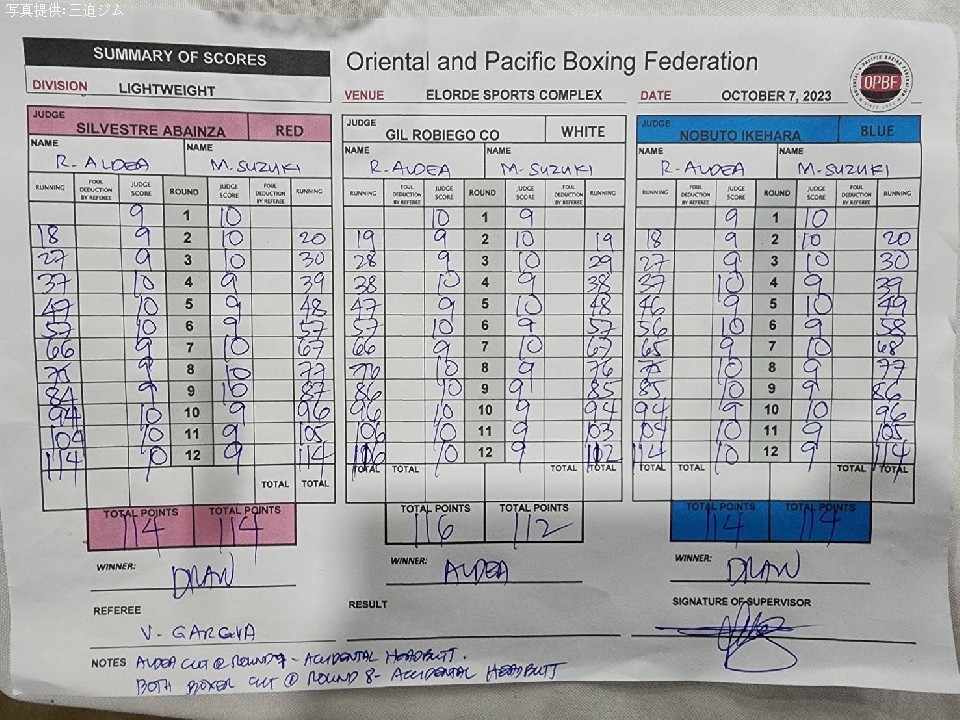 写真提供:三迫ジム
SUMMARY OF SCORES
Oriental and Pacific Boxing Federation
OPBF
DIVISION LIGHTWEIGHT
VENUE ELORDE SPORTS COMPLEX
DATE OCTOBER 7, 2023
JUDGE SILVESTRE ABAINZA RED
NAME R. ALDEA NAME M. SUZUKI
RUNNING FOUL DEDUCTION BY REFEREE JUDGE SCORE ROUND JUDGE SCORE FOUL DEDUCTION BY REFEREE RUNNING
9 1 10
18 9 2 10 20
27 9 3 10 30
37 10 4 9 39
47 10 5 9 48
57 10 6 9 57
66 9 7 10 67
75 9 8 10 77
84 9 9 10 87
94 10 10 9 96
104 10 11 9 105
114 10 12 9 114
TOTAL TOTAL
TOTAL POINTS TOTAL POINTS
114 114
WINNER: DRAW
JUDGE GIL ROBIEGO CO WHITE
NAME R. ALDEA NAME M. SUZUKI
RUNNING FOUL DEDUCTION BY REFEREE JUDGE SCORE ROUND JUDGE SCORE FOUL DEDUCTION BY REFEREE RUNNING
10 1 9
19 9 2 10 19
28 9 3 10 29
38 10 4 9 38
47 9 5 10 48
57 10 6 9 57
66 9 7 10 67
76 10 8 9 76
86 10 9 9 85
96 10 10 9 94
106 10 11 9 103
10 12 9 102
TOTAL TOTAL TOTAL TOTAL
TOTAL POINTS TOTAL POINTS
116 112
WINNER: ALDEA
JUDGE NOBUTO IKEHARA BLUE
NAME R. ALDEA NAME M. SUZUKI
RUNNING FOUL DEDUCTION BY REFEREE JUDGE SCORE ROUND JUDGE SCORE FOUL DEDUCTION BY REFEREE RUNNING
9 1 10
18 9 2 10 20
27 9 3 10 30
37 10 4 9 39
46 9 5 10 49
56 10 6 9 58
65 9 7 10 68
75 10 8 9 77
85 10 9 9 86
94 9 10 10 96
104 10 11 9 105
114 10 12 9 114
TOTAL TOTAL TOTAL TOTAL
TOTAL POINTS TOTAL POINTS
114 114
WINNER: DRAW
REFEREE V. GARCIA
RESULT
SIGNATURE OF SUPERVISOR
NOTES ALDEA CUT @ ROUND 7 - ACCIDENTAL HEADBUTT.
BOTH BOXER CUT @ ROUND 8 - ACCIDENTAL HEADBUTT